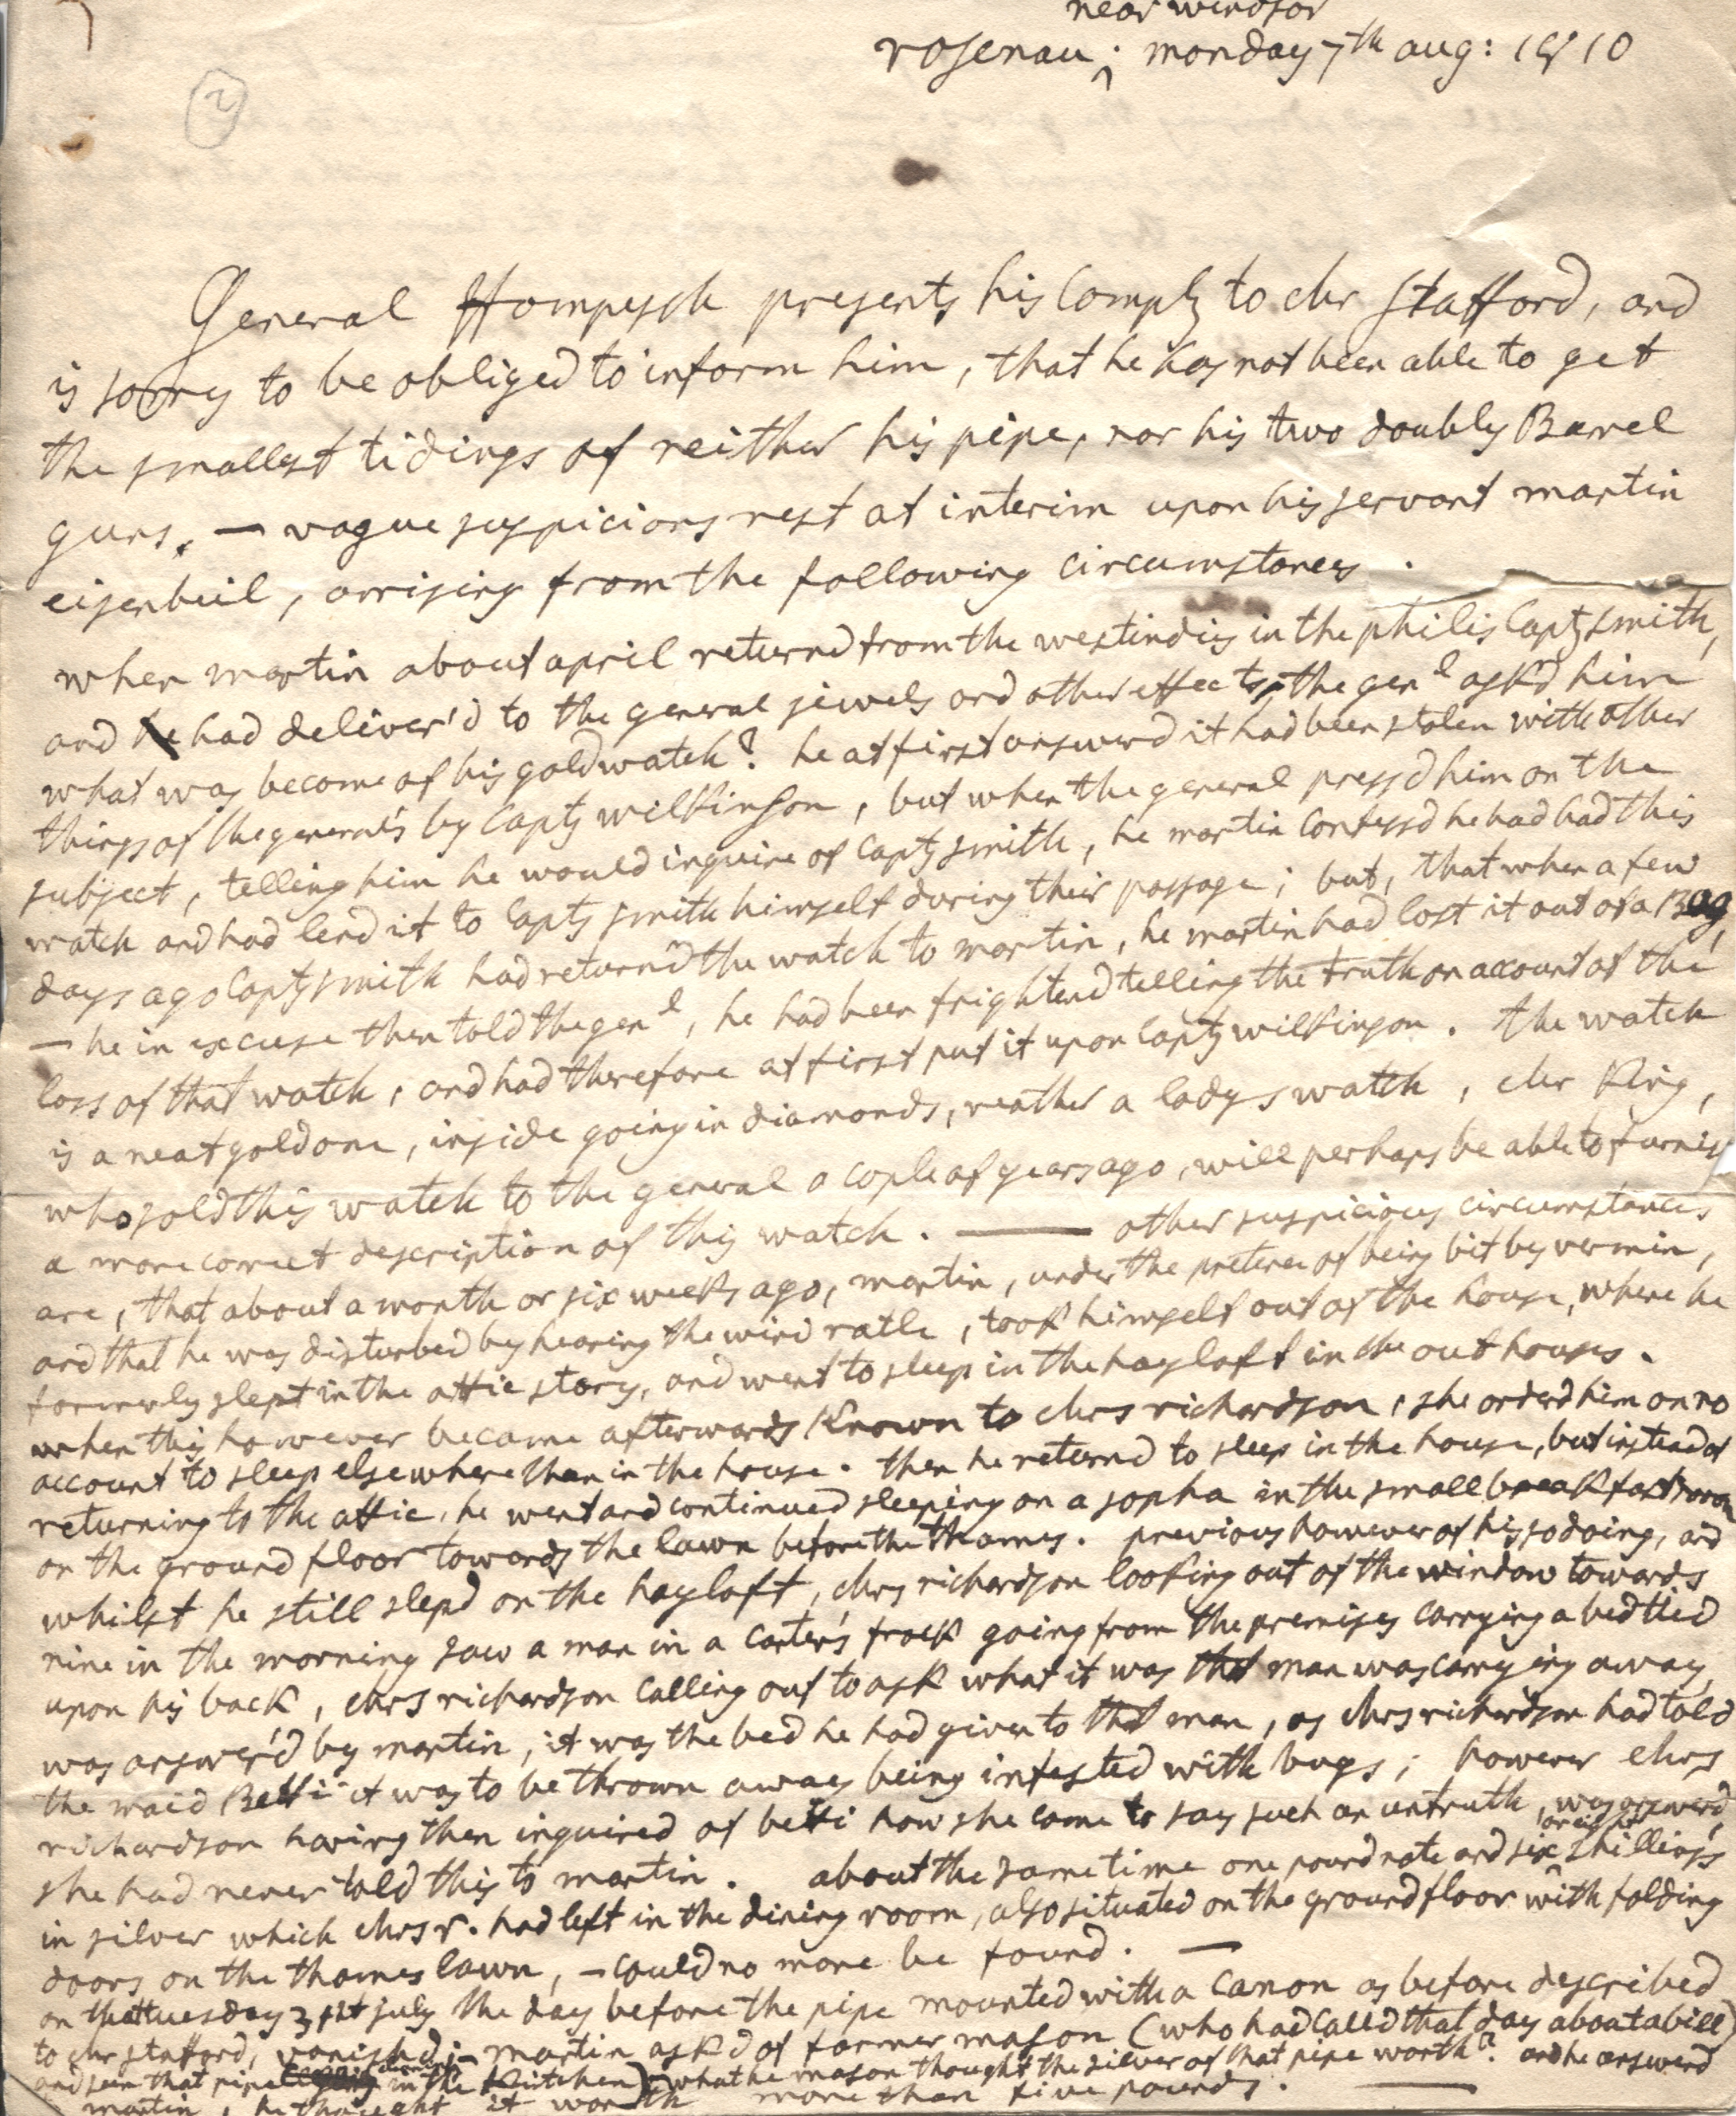 near windsor
rosenau; monday 7th aug: 1810
2
General Hompesch presents his Compts to Mr Stafford, and
is sorry to be obliged to inform him, that he has not been able to get
the smallest tidings of neither his pipe, nor his two doubly Barrel
guns. — vague suspicions rest at interim upon his servant martin
eisenbeil, arrising from the following circumstances.
when martin about april returnd from the westindies in the philis Capt smith,
and had deliver'd to the general jewels and other effects, the genl ask'd him
what was become of his gold watch? he at first answerd it had been stolen with other
things of the general's by Capt wilkinson, but when the general press'd him on the
subject, telling him he would inquire of Capt smith, he martin confessd he had had this
watch and had lend it to Capt smith himself during their passage; but, that when a few
days ago Capt smith had return'd the watch to martin, he martin had lost it out of a Bag,
— he in excuse then told the genl, he had been frightend telling the truth on account of the
loss of that watch, and had therefore at first put it upon Capt wilkinson. the watch
is a neat gold one, inside going in diamonds, reather a ladys watch, Mr King,
who sold this watch to the general a cople of years ago, will perhaps be able to furnish
a more correct description of this watch. — other suspicious circumstances
are, that about a month or six weeks ago, martin, under the pretence of being bit by vermin,
and that he was disturbed by hearing the wind ratle, took himself out of the house, where he
formerly slept in the attic story, and went to sleep in the hayloft in the out houses.
when this however became afterwards Known to Mrs richardson, she orderd him on no
account to sleep elsewhere than in the house. then he returnd to sleep in the house, but instead of
returning to the attic, he went and continued sleeping on a sopha in the small breakfastroom
on the ground floor towards the lawn before the thames. previous however of his so doing, and
whilst he still slepd on the hayloft, Mrs richardson looking out of the window towards
nine in the morning saw a man in a carter's frock going from the premises carrying a bed tied
upon his back, Mrs richardson calling out to ask what it was that man was carrying away,
was answer'd by martin, it was the bed he had given to that man, as Mrs richardson had told
the maid Betti it was to be thrown away being infested with bugs; however Mrs
richardson having then inquired of betti how she came to say such an untruth, was answerd,
she had never told this to martin. about the same time one pound note and six or eight shillings
in silver which Mrs r. had left in the dining room, also situated on the ground floor with folding
doors on the thames lawn, — could no more be found. —
on the tuesday 31st july the day before the pipe mounted with a canon as before described
to Mr stafford, vanished; — martin ask'd of farmer mason (who had called that day about a bill)
and seen that pipe in the Kitchen) what he mason thought the silver of that pipe worth? and he answerd
martin, he thought it worth more than five pounds. —